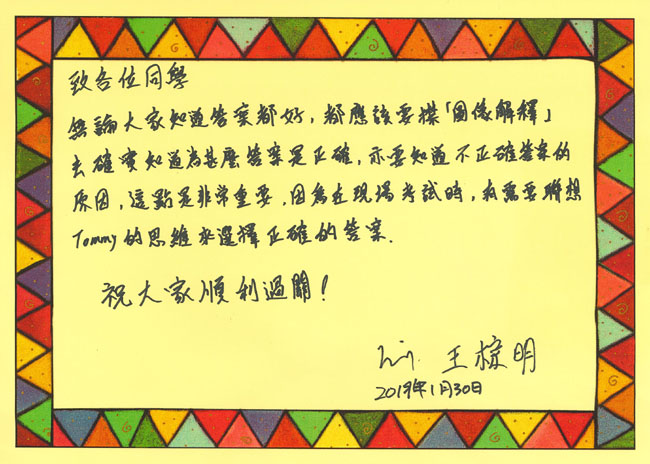 致各位同學
無論大家知道答案都好，都應該要撳「圖像解釋」
去確實知道為甚麼答案是正確，亦要知道不正確答案的
原因，這點是非常重要，因為在現場考試時，有需要聯想
Tommy的思維來選擇正確的答案．
祝大家順利過關！
王棕明
2019年1月30日